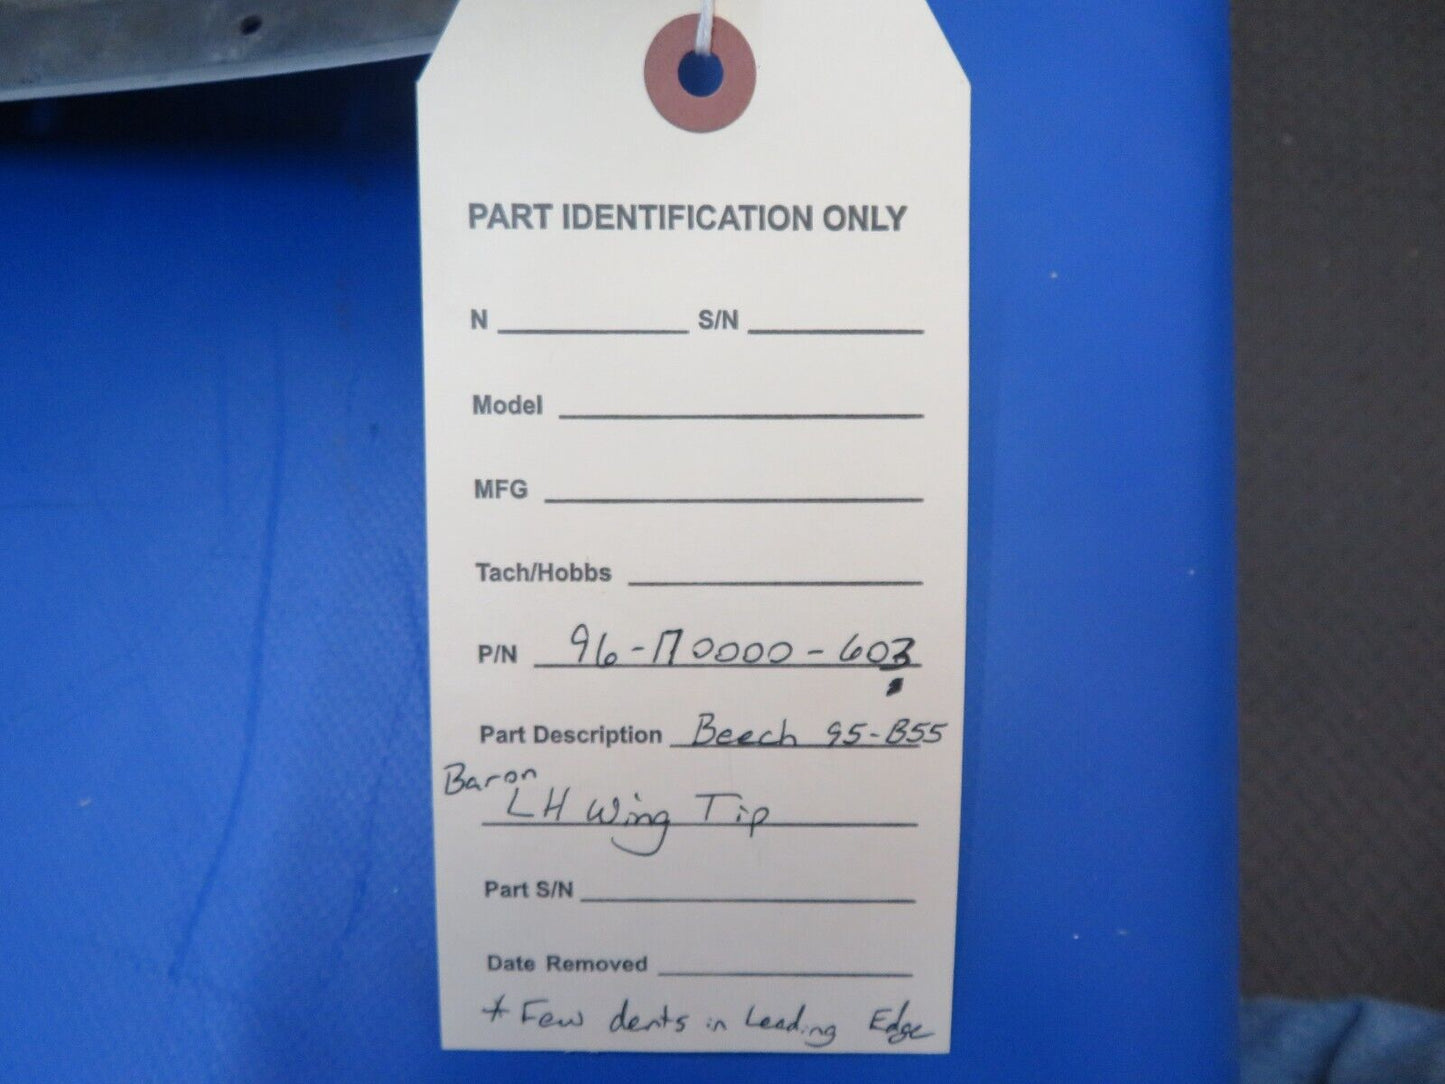 PART IDENTIFICATION ONLY
N S/N
Model
MFG
Tach/Hobbs
P/N 96-170000-603
Part Description Beech 95-B55
Baron
LH Wing Tip
Part S/N
Date Removed
* Few dents in Leading Edge